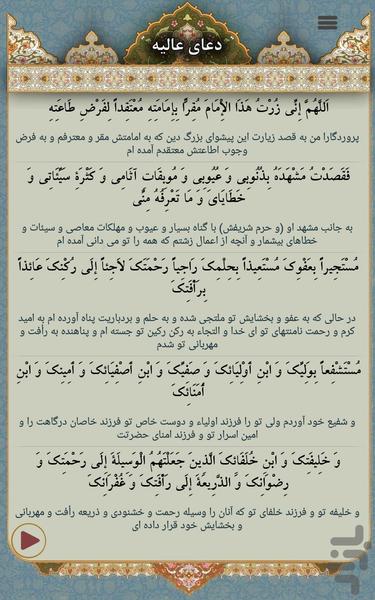 دعای عالیه
اَللّهُمَّ اِنّی زُرْتُ هَذَا الاِْمَامَ مُقِرّاً بِاِمَامَتِهِ مُعْتَقِداً لِفَرْضِ طَاعَتِهِ
پروردگارا من به قصد زیارت این پیشوای بزرگ دین که به امامتش مقر و معترفم و به فرض
وجوب اطاعتش معتقدم آمده ام
فَقَصَدْتُ مَشْهَدَهُ بِذُنُوبی وَ عُیُوبی وَ مُوبِقَاتِ آثَامی وَ کَثْرَةِ سَیِّئَاتی وَ
خَطَایَایَ وَ مَا تَعْرِفُهُ مِنّی
به جانب مشهد او (و حرم شریفش) با گناه بسیار و عیوب و مهلکات معاصی و سیئات و
خطاهای بیشمار و آنچه از اعمال زشتم که همه را تو می دانی آمده ام
مُسْتَجیراً بِعَفْوِکَ مُسْتَعیذاً بِحِلْمِکَ رَاجِیاً رَحْمَتَکَ لاَجِئاً اِلَی رُکْنِکَ عَائِذاً
بِرَأْفَتِکَ
در حالی که به عفو و بخشایش تو ملتجی شده و به حلم و بردباریت پناه آورده ام به امید
کرم و رحمت نامنتهای تو ای خدا و التجاء به رکن رکین تو جسته ام و پناهنده به رأفت و
مهربانی تو شدم
مُسْتَشْفِعاً بِوَلِیِّکَ وَ ابْنِ اَوْلِیَائِکَ وَ صَفِیِّکَ وَ ابْنِ اَصْفِیَائِکَ وَ اَمینِکَ وَ ابْنِ
اُمَنَائِکَ
و شفیع خود آوردم ولی تو را فرزند اولیاء و دوست خاص تو فرزند خاصان درگاهت را و
امین اسرار تو و فرزند امنای حضرتت
وَ خَلیفَتِکَ وَ ابْنِ خُلَفَائِکَ الَّذینَ جَعَلْتَهُمُ الْوَسیلَةَ اِلَی رَحْمَتِکَ وَ
رِضْوَانِکَ وَ الذَّریعَةَ اِلَی رَأْفَتِکَ وَ غُفْرَانِکَ
و خلیفه تو و فرزند خلفای تو که آنان را وسیله رحمت و خشنودی و ذریعه رأفت و مهربانی
و بخشایش خود قرار داده ای
بازار